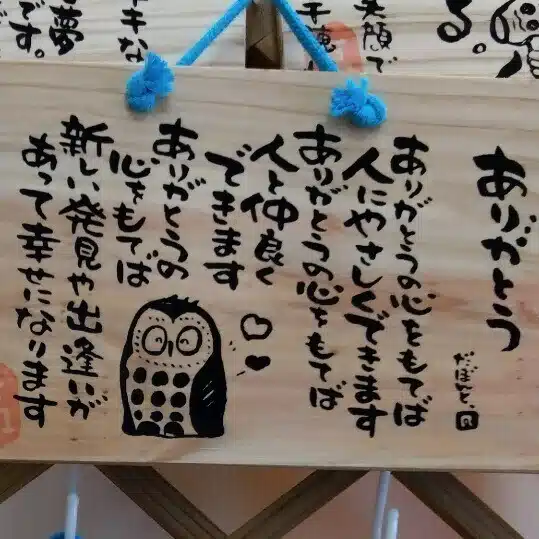 ありがとう
ありがとうの心をもてば
人にやさしくできます
ありがとうの心をもてば
人と仲良く
できます
ありがとうの
心をもてば
新しい発見や出逢いが
あって幸せになります
る。
笑顔で
夢
です。